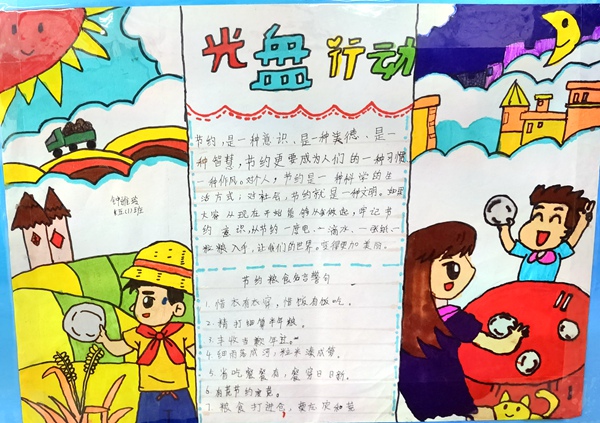 光盘行动
节约,是一种意识、是一种美德、是一
种智慧,节约更要成为人们的一种习惯
一种作风。对个人,节约是一种科学的生
活方式;对社会,节约就是一种文明。如果
大家从现在开始能够从我做起,牢记节
约意识,从节约一度电、一滴水、一张纸、一
粒粮入手,让我们的世界。变得更加美丽。
五(1)班
节约粮食名言警句
1.惜衣有衣穿,惜饭有饭吃。
2.精打细算年年粮。
3.丰收当歉年过。
4.细雨落成河,粒米凑成箩。
5.省吃餐餐有,省穿日日新。
6.勤节约
7.粮食打进仓,莫忘灾和荒